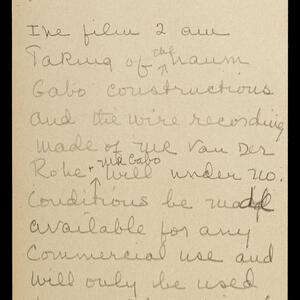 The film I am
Taking of the Naum
Gabo constructions
and the wire recording
made of Mr Van Der
Rohe + Mr Gabo will under no
conditions be made
available for any
commercial use and
will only be used